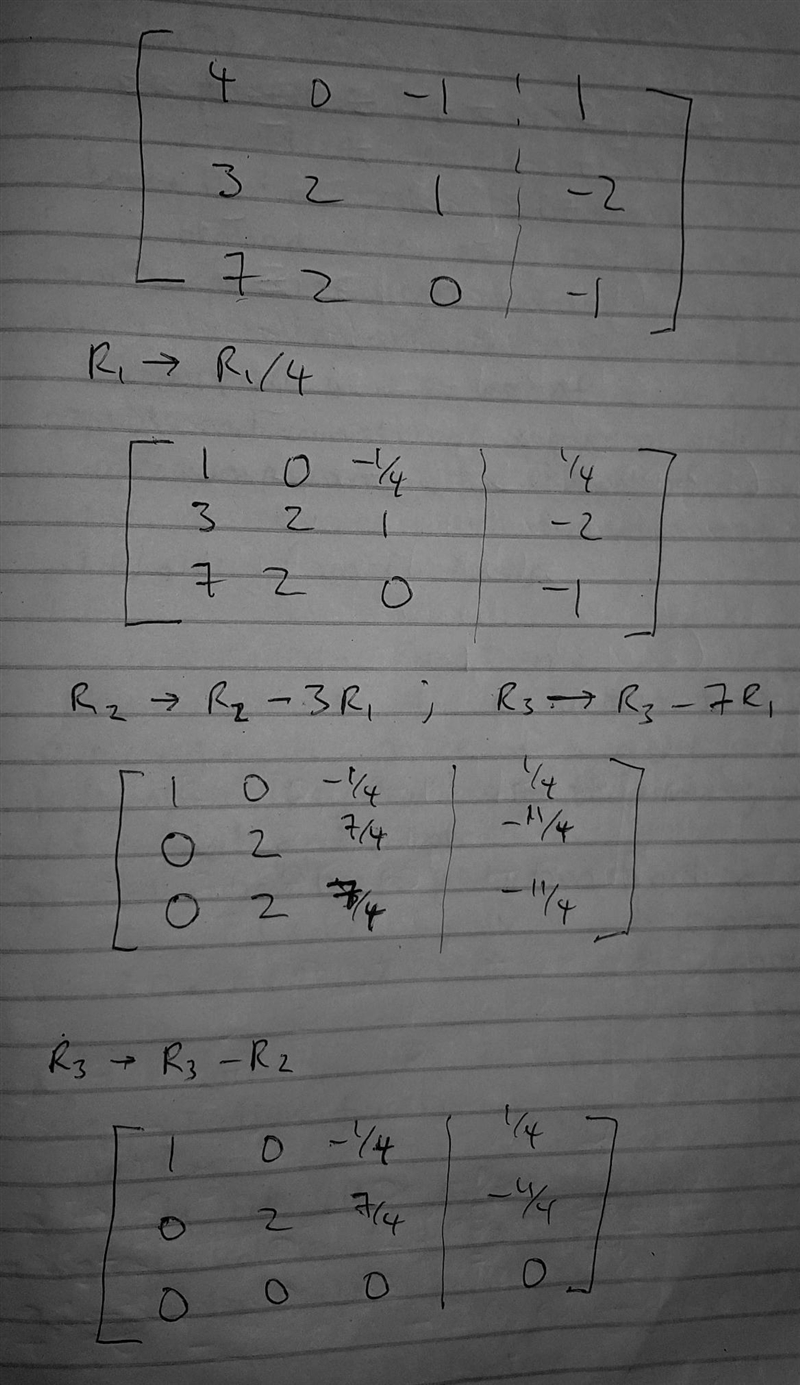 4 0 -1 | 1
3 2 1 | -2
7 2 0 | -1
R₁ → R₁/4
1 0 -1/4 | 1/4
3 2 1 | -2
7 2 0 | -1
R₂ → R₂ - 3R₁ ; R₃ → R₃ - 7R₁
1 0 -1/4 | 1/4
0 2 7/4 | -11/4
0 2 7/4 | -11/4
R₃ → R₃ - R₂
1 0 -1/4 | 1/4
0 2 7/4 | -11/4
0 0 0 | 0